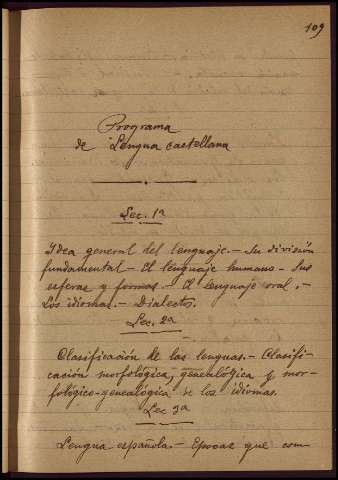 109
Programa
de Lengua castellana
Lec. 1ª
Idea general del lenguaje.- Su división
fundamental.- El lenguaje humano.- Sus
esferas y formas.- El lenguaje oral.-
Los idiomas.- Dialectos.
Lec. 2ª
Clasificación de las lenguas.- Clasifi-
cación morfológica, genealógica y mor-
fológico-genealógica de los idiomas.
Lec 3ª
Lengua española.- Epocas que com-